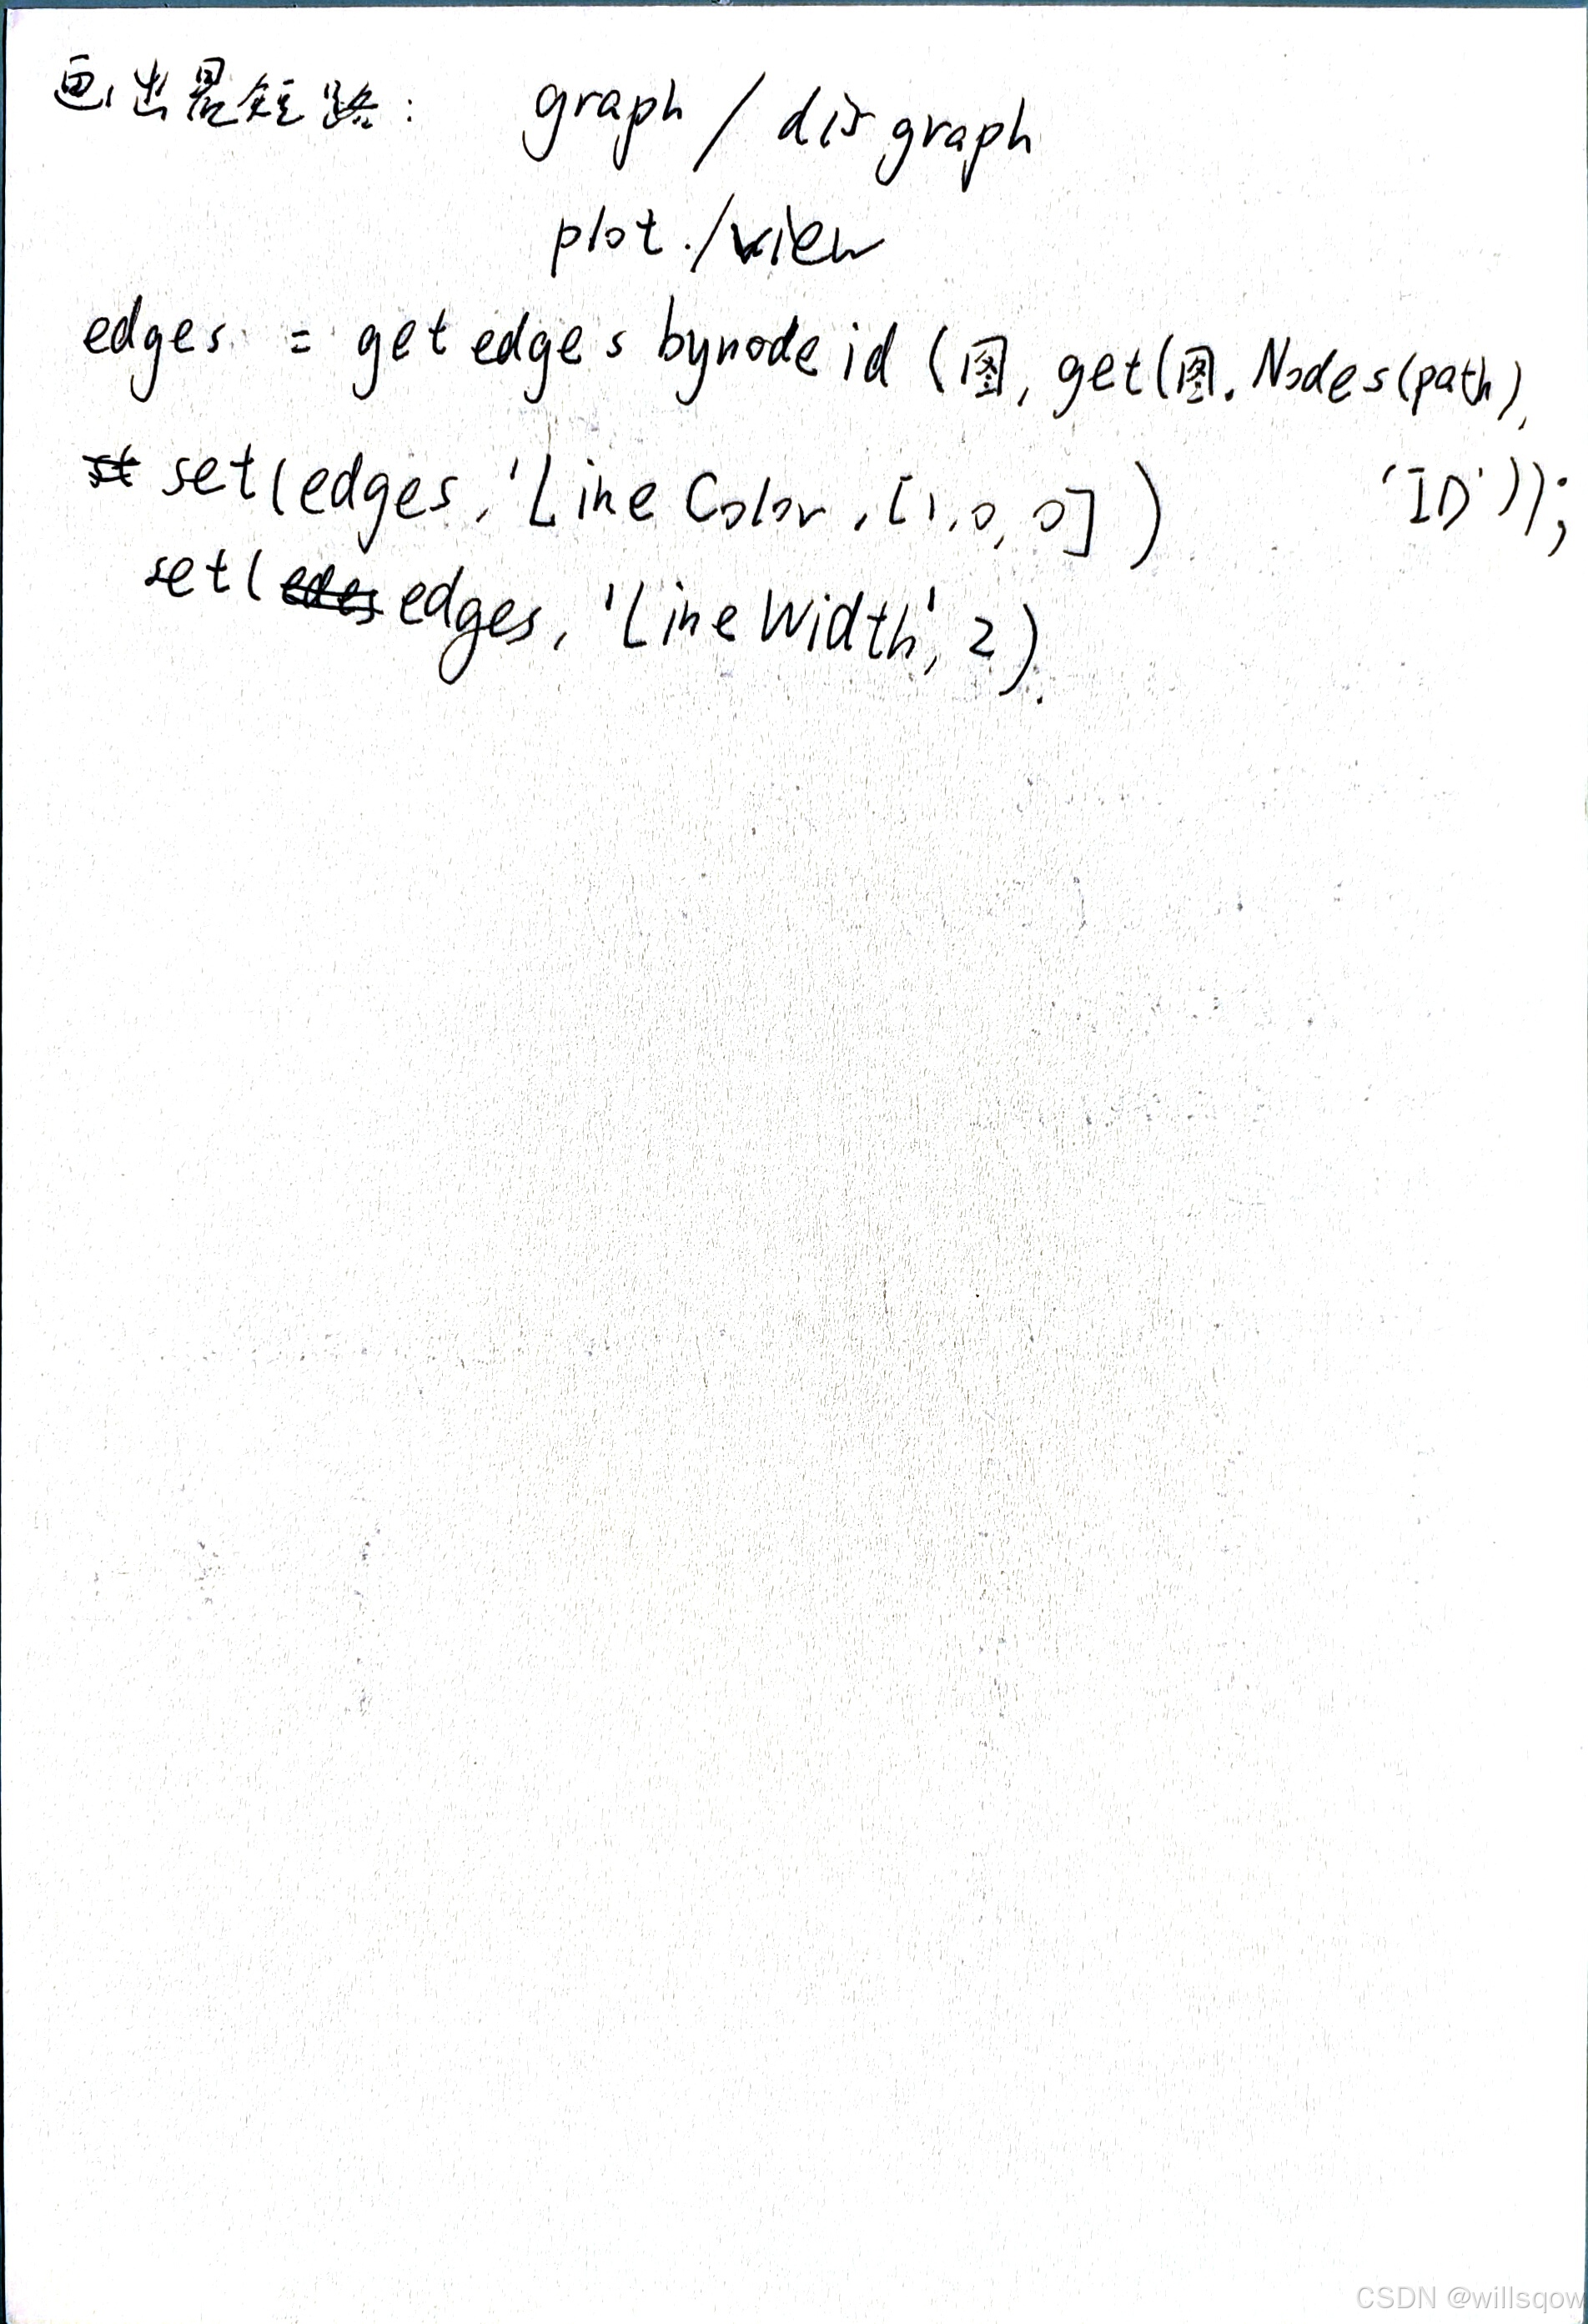 画出最短路: graph / disgraph
plot./view
edges = getedgesbynodeid (图, get(图.Nodes(path),
'ID'));
set(edges, 'LineColor, [1,0,0])
set(edges, 'LineWidth', 2).
CSDN @willsqow